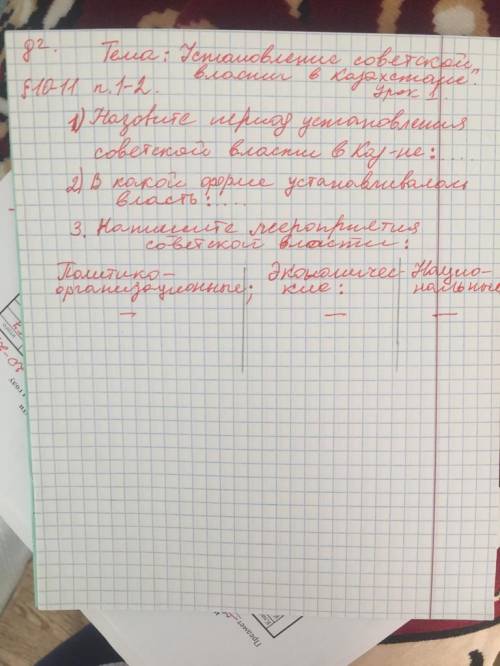 Тема: Установление советской
власти в Казахстане".
§10-11 п. 1-2. Урок 1.
1) Назовите период установления
советской власти в Каз-не: ....
2) В какой форме устанавливалась
власть: ....
3. Напишите мероприятия
советской власти:
Политико- Экономичес- Нацио-
организационные; кие: нальные
— — —
Предмет